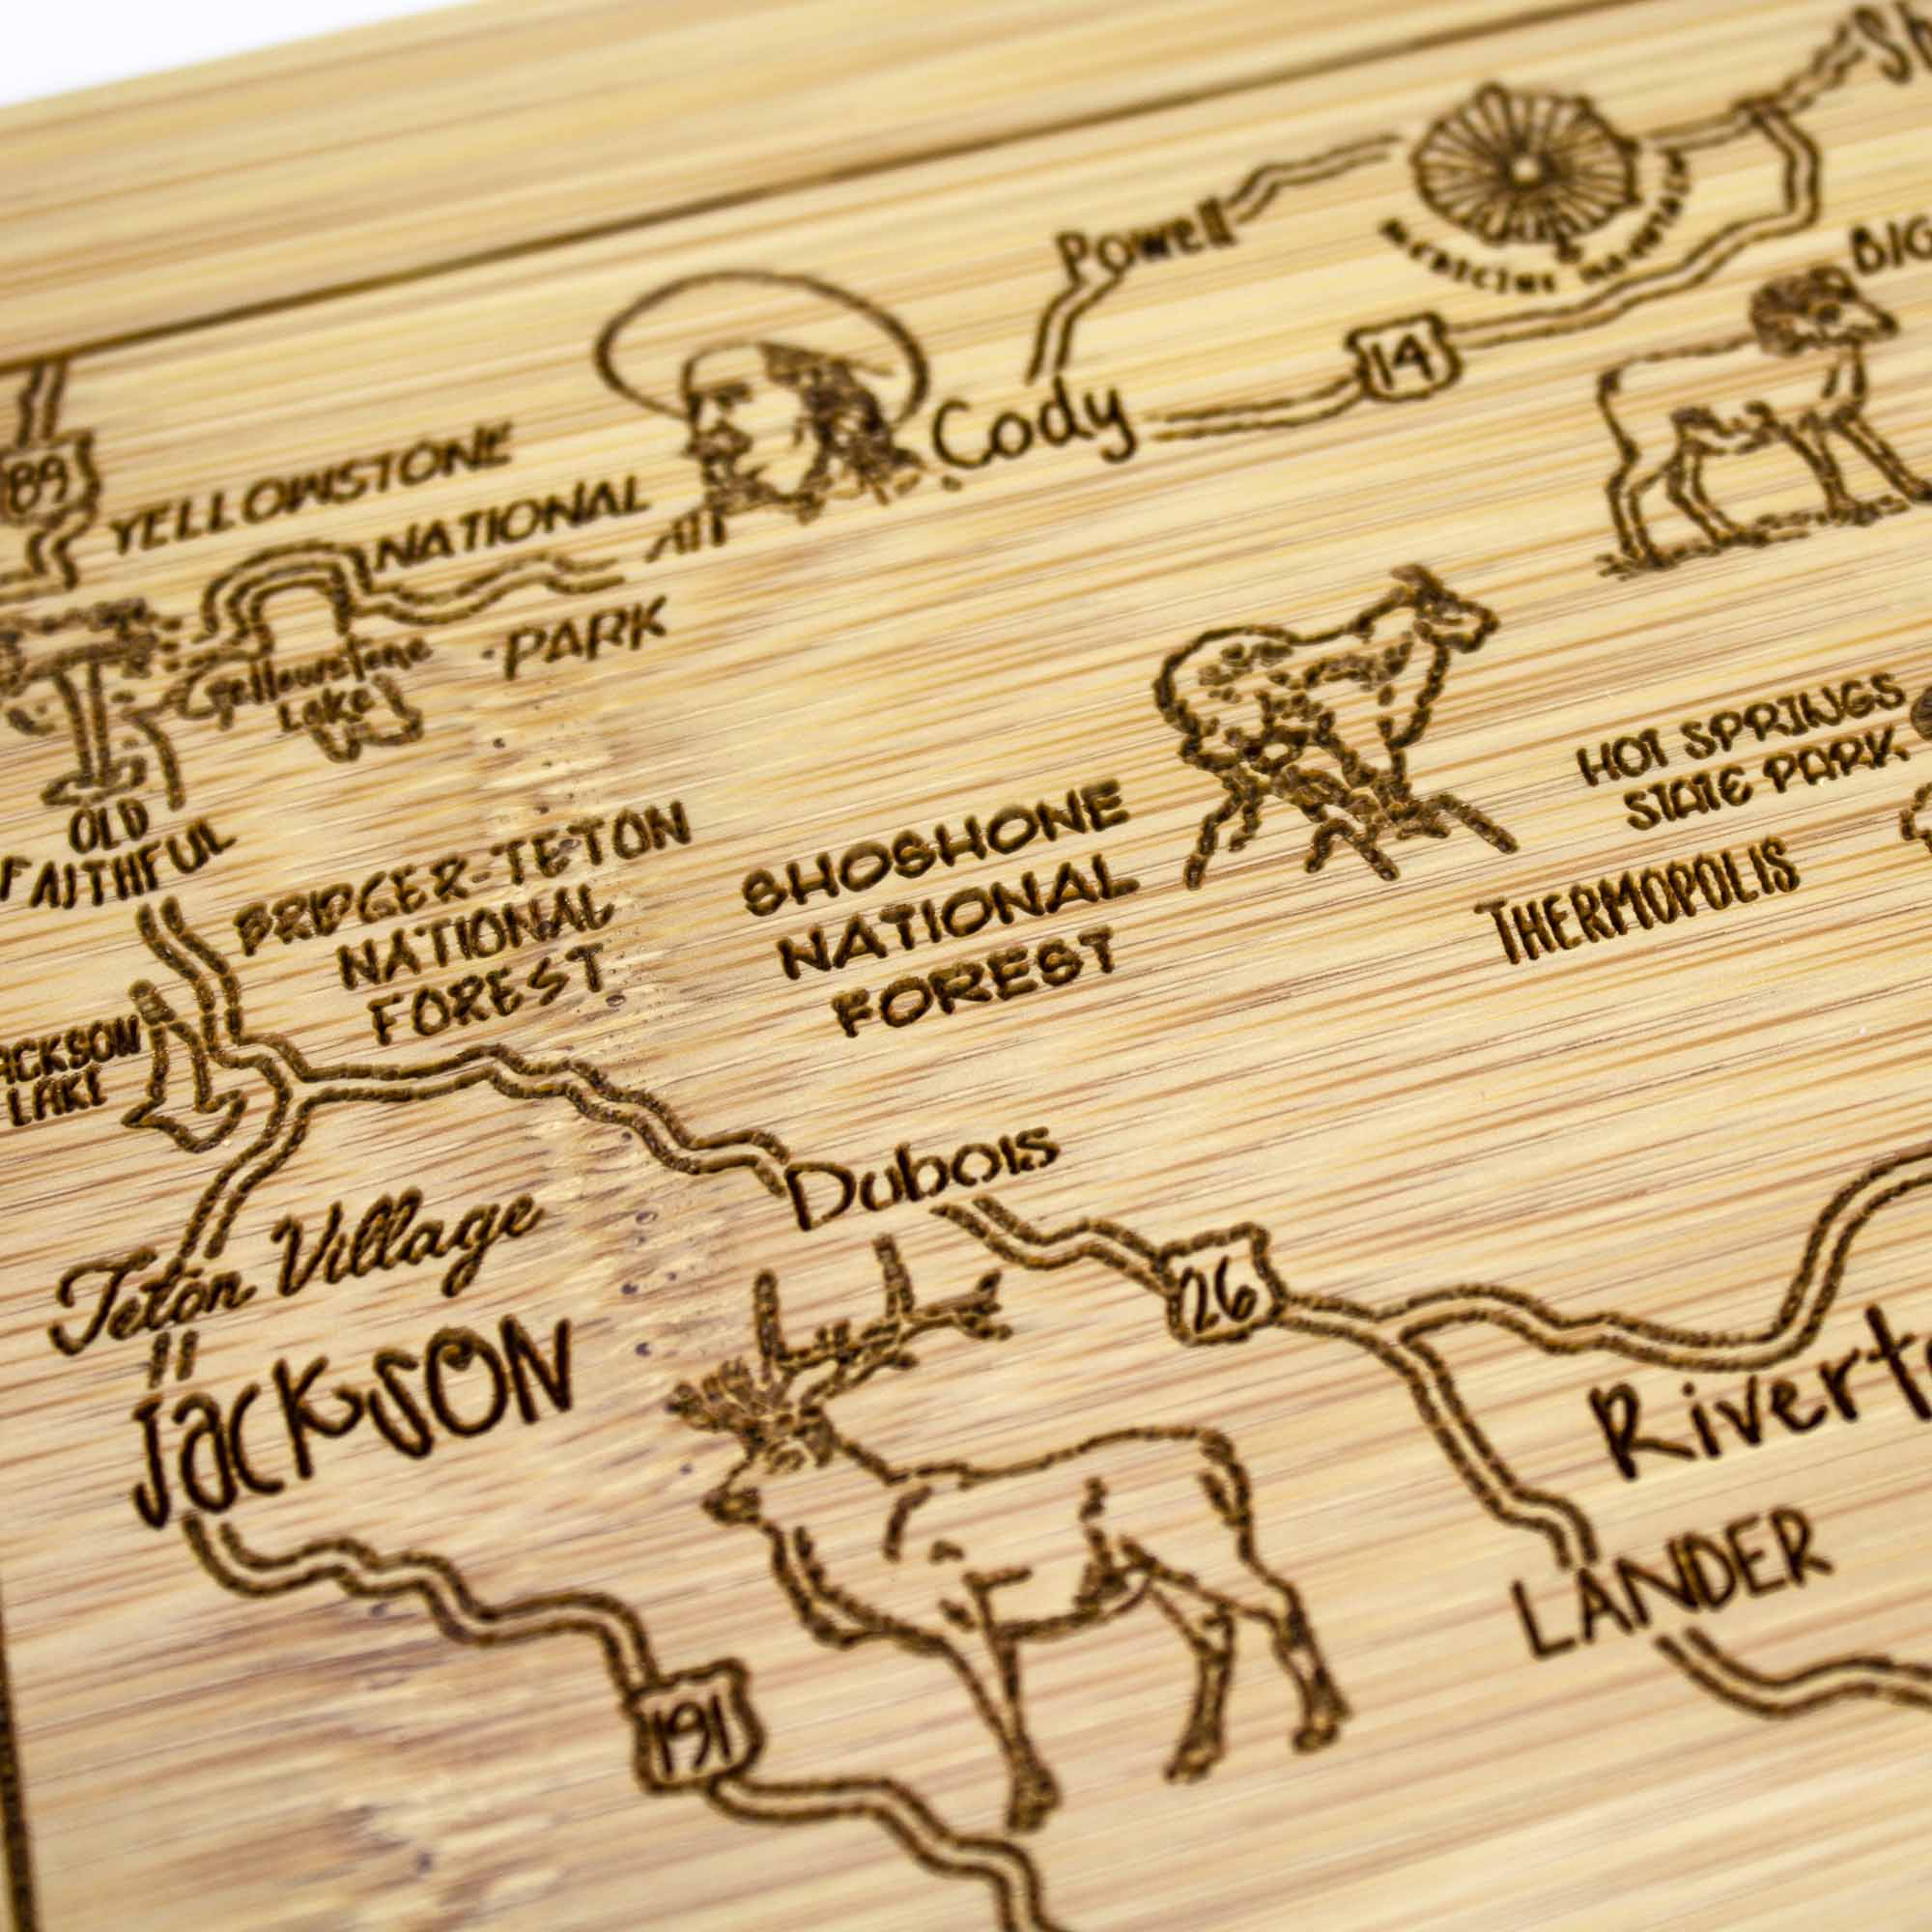 Powell
MEDICINE MOUNTAIN
BIG
14
Cody
89
YELLOWSTONE
NATIONAL
PARK
Yellowstone
Lake
OLD
FAITHFUL
HOT SPRINGS
STATE PARK
THERMOPOLIS
SHOSHONE
NATIONAL
FOREST
BRIDGER-TETON
NATIONAL
FOREST
ACKSON
LAKE
Dubois
26
Teton Village
JACKSON
Riverto
LANDER
191